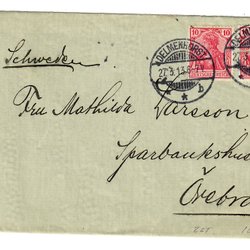 Schweden
DELMENHORST
27.3.13.
* b
10 10
Fru Mathilda Larsson
Sparbankshus
Örebro